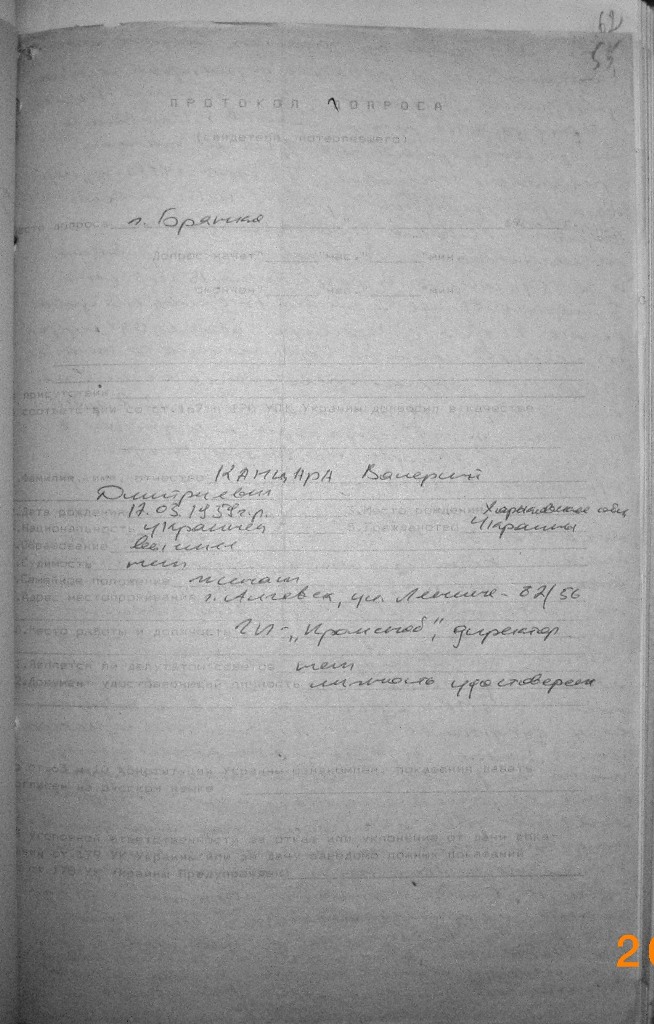 62
55
ПРОТОКОЛ ДОПРОСА
(свидетеля, потерпевшего)
допроса г. Брянка
Допрос начат" "час." "мин.
окончен" "час." "мин.
присутствии
соответствии со ст. 167 и 170 УПК Украины допросил в качестве
.Фамилия, имя, отчество КАНЦАРА Валерий
Дмитриевич
.Дата рождения 17.03.1959г.р. 3.Место рождения Харьковской обл
.Национальность украинец Гражданство Украины
.Образование высшее
.Судимость нет
.Семейное положение женат
.Адрес местопроживания г. Алчевск, ул. Ленина - 82/56
.Место работы и должность „Промснаб", директор
.Является ли депутатом советов нет
.Документ удостоверяющий личность личность удостоверена
ст.63 Конституции Украины ознакомлен, показания давать
согласен на русском языке
уголовной ответственности за отказ или уклонение от дачи пока-
ст.179 УК Украины или за дачу заведомо ложных показаний
ст.178 УК Украины Предупрежден
2